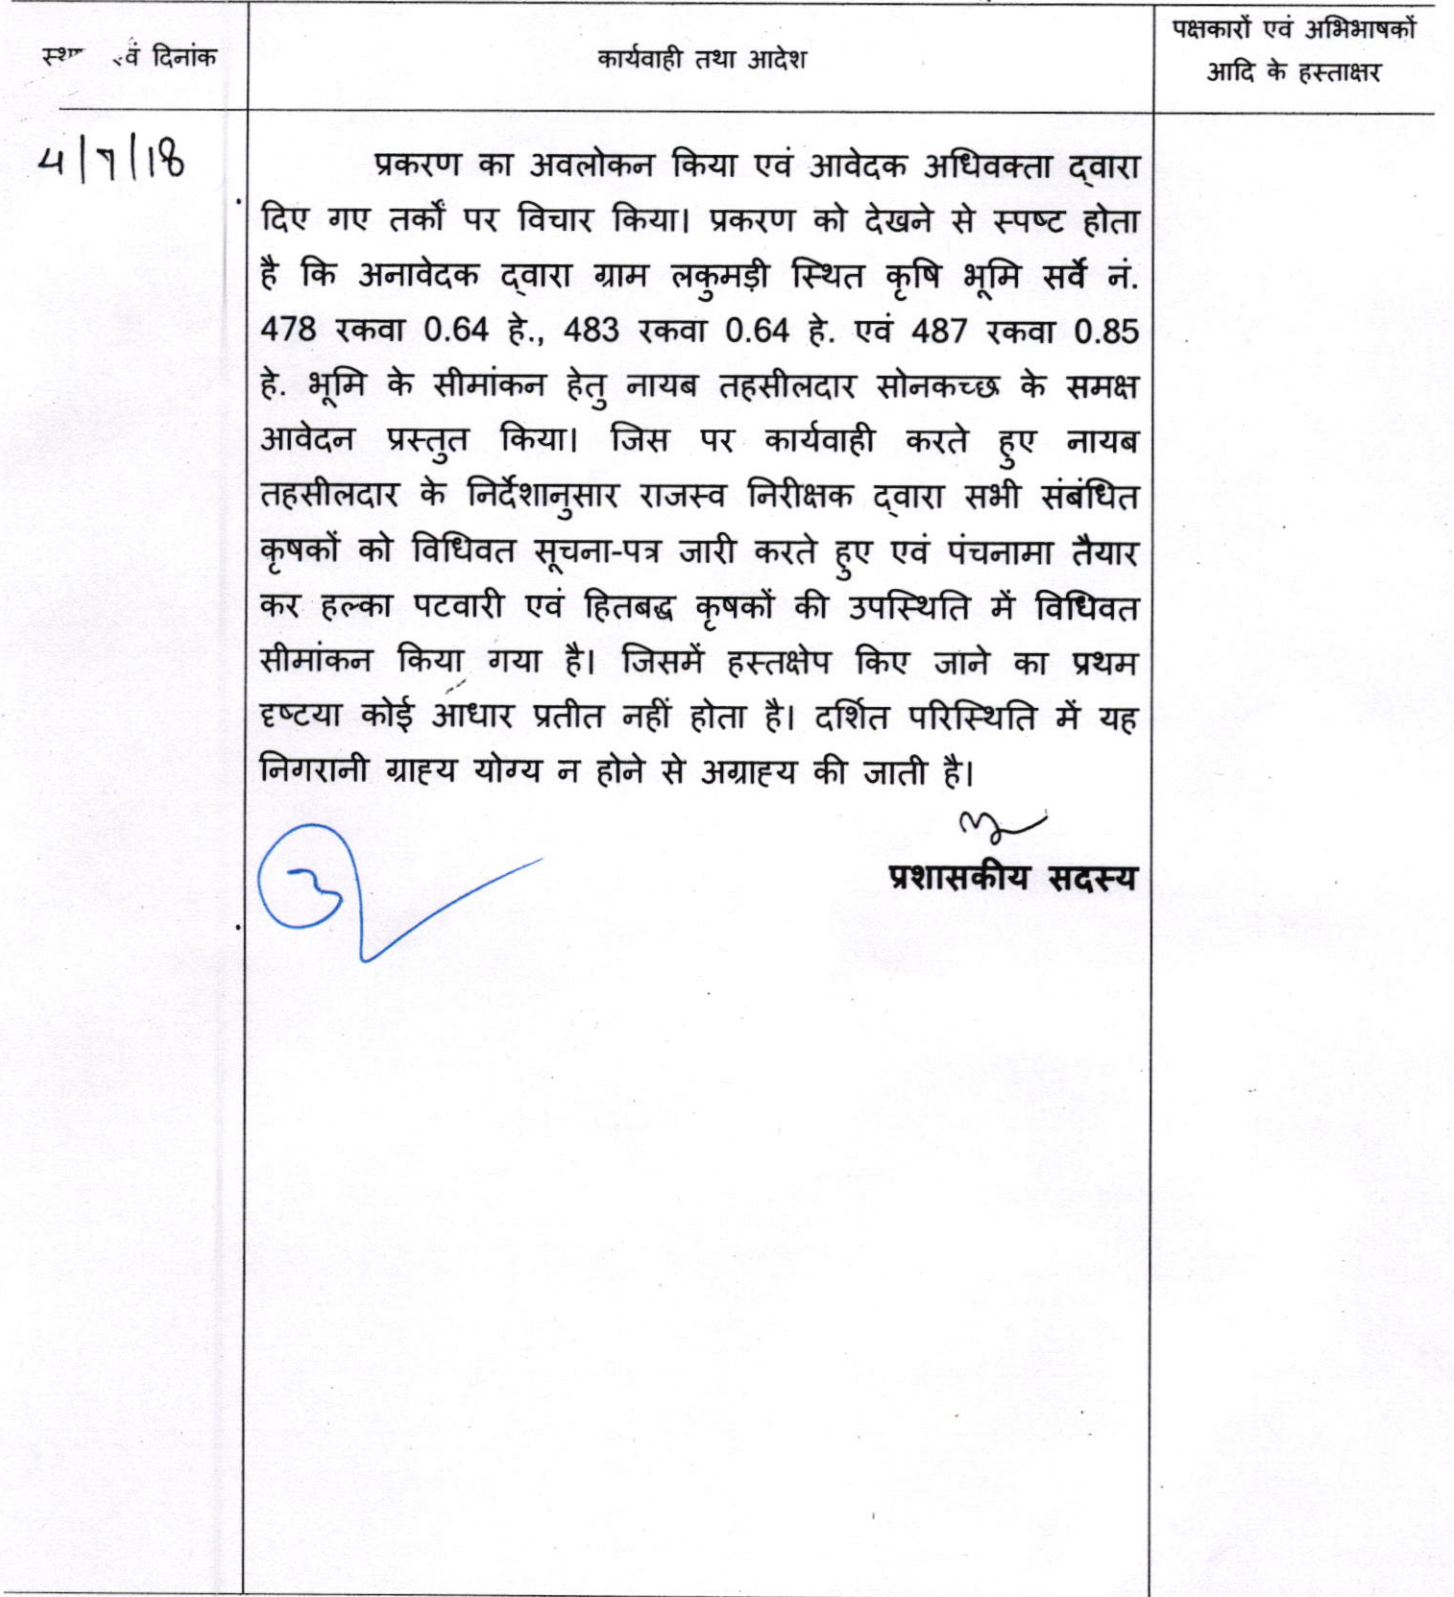 वं दिनांक
कार्यवाही तथा आदेश
पक्षकारों एवं अभिभाषकों
आदि के हस्ताक्षर
4/7/18
प्रकरण का अवलोकन किया एवं आवेदक अधिवक्ता द्वारा
दिए गए तर्कों पर विचार किया। प्रकरण को देखने से स्पष्ट होता
है कि अनावेदक द्वारा ग्राम लकुमड़ी स्थित कृषि भूमि सर्वे नं.
478 रकवा 0.64 हे., 483 रकवा 0.64 हे. एवं 487 रकवा 0.85
हे. भूमि के सीमांकन हेतु नायब तहसीलदार सोनकच्छ के समक्ष
आवेदन प्रस्तुत किया। जिस पर कार्यवाही करते हुए नायब
तहसीलदार के निर्देशानुसार राजस्व निरीक्षक द्वारा सभी संबंधित
कृषकों को विधिवत सूचना-पत्र जारी करते हुए एवं पंचनामा तैयार
कर हल्का पटवारी एवं हितबद्ध कृषकों की उपस्थिति में विधिवत
सीमांकन किया गया है। जिसमें हस्तक्षेप किए जाने का प्रथम
दृष्टया कोई आधार प्रतीत नहीं होता है। दर्शित परिस्थिति में यह
निगरानी ग्राह्य योग्य न होने से अग्राह्य की जाती है।
प्रशासकीय सदस्य